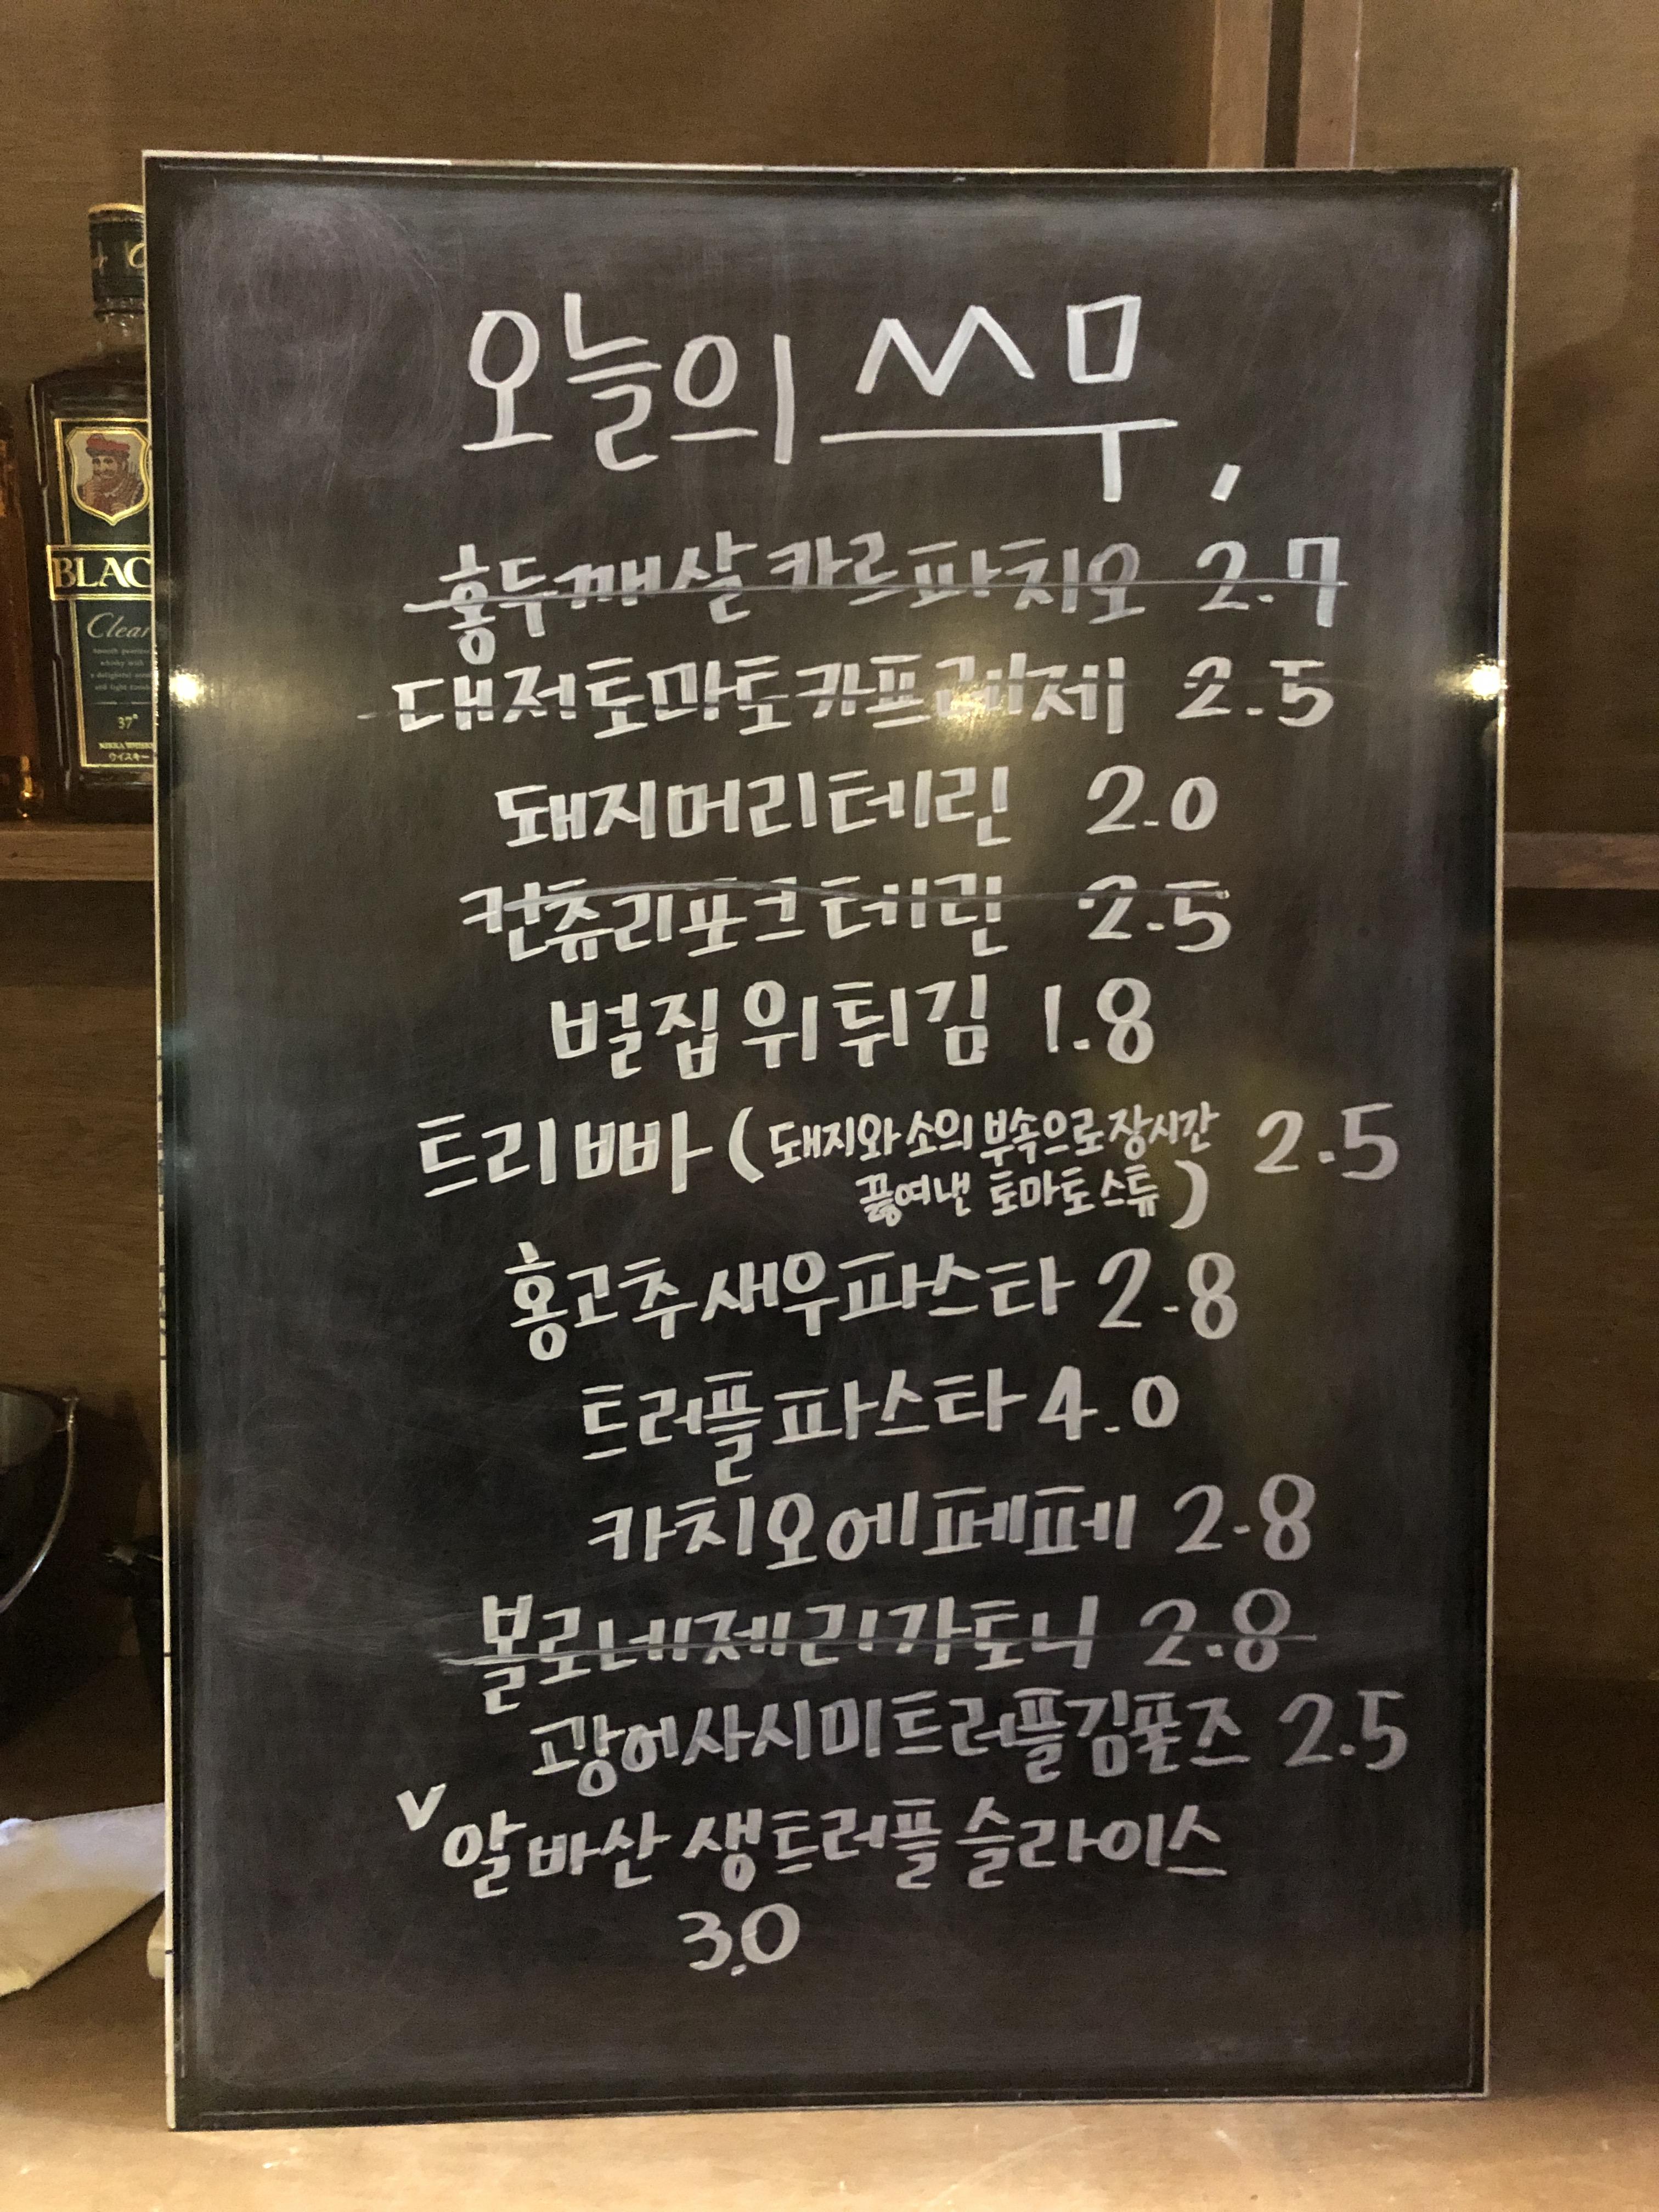 오늘의 쓰무,
홍두깨살 카르파치오 2.7
대저토마토카프레제 2.5
돼지머리테린 2.0
컨츄리포크테린 2.5
벌집위튀김 1.8
트리빠 (돼지와 소의 부속으로 장시간 2.5
끓여낸 토마토스튜)
홍고추새우파스타 2.8
트러플파스타 4.0
카치오에페페 2.8
볼로네제리가토니 2.8
광어사시미트러플김폰즈 2.5
v 알바산 생트러플 슬라이스
3.0
BLAC
Clear
37°
NIKKA WHISKY
ウイスキー